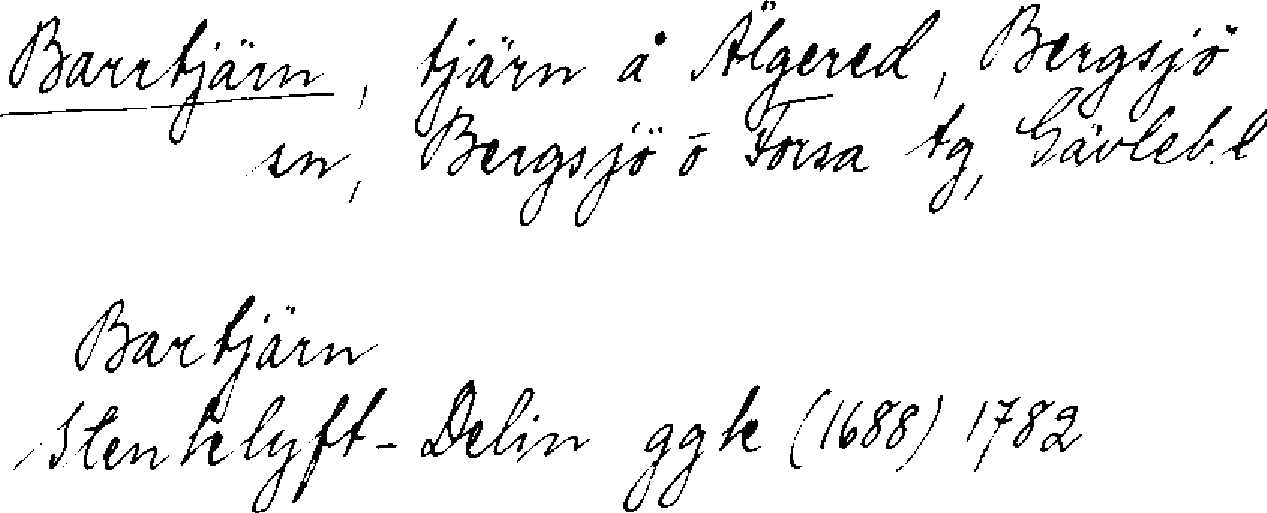 Barrtjärn, tjärn å Älgered, Bergsjö
sn, Bergsjö o Forsa tg, Gävleb. l
Bartjärn
Stenklyft-Delin ggk (1688) 1782